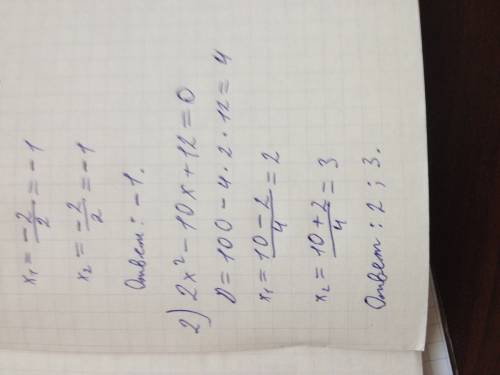 x₁ = -2/2 = -1
x₂ = -2/2 = -1
Ответ: -1.
2) 2x² - 10x + 12 = 0
D = 100 - 4 · 2 · 12 = 4
x₁ = 10 - 2/4 = 2
x₂ = 10 + 2/4 = 3
Ответ: 2; 3.